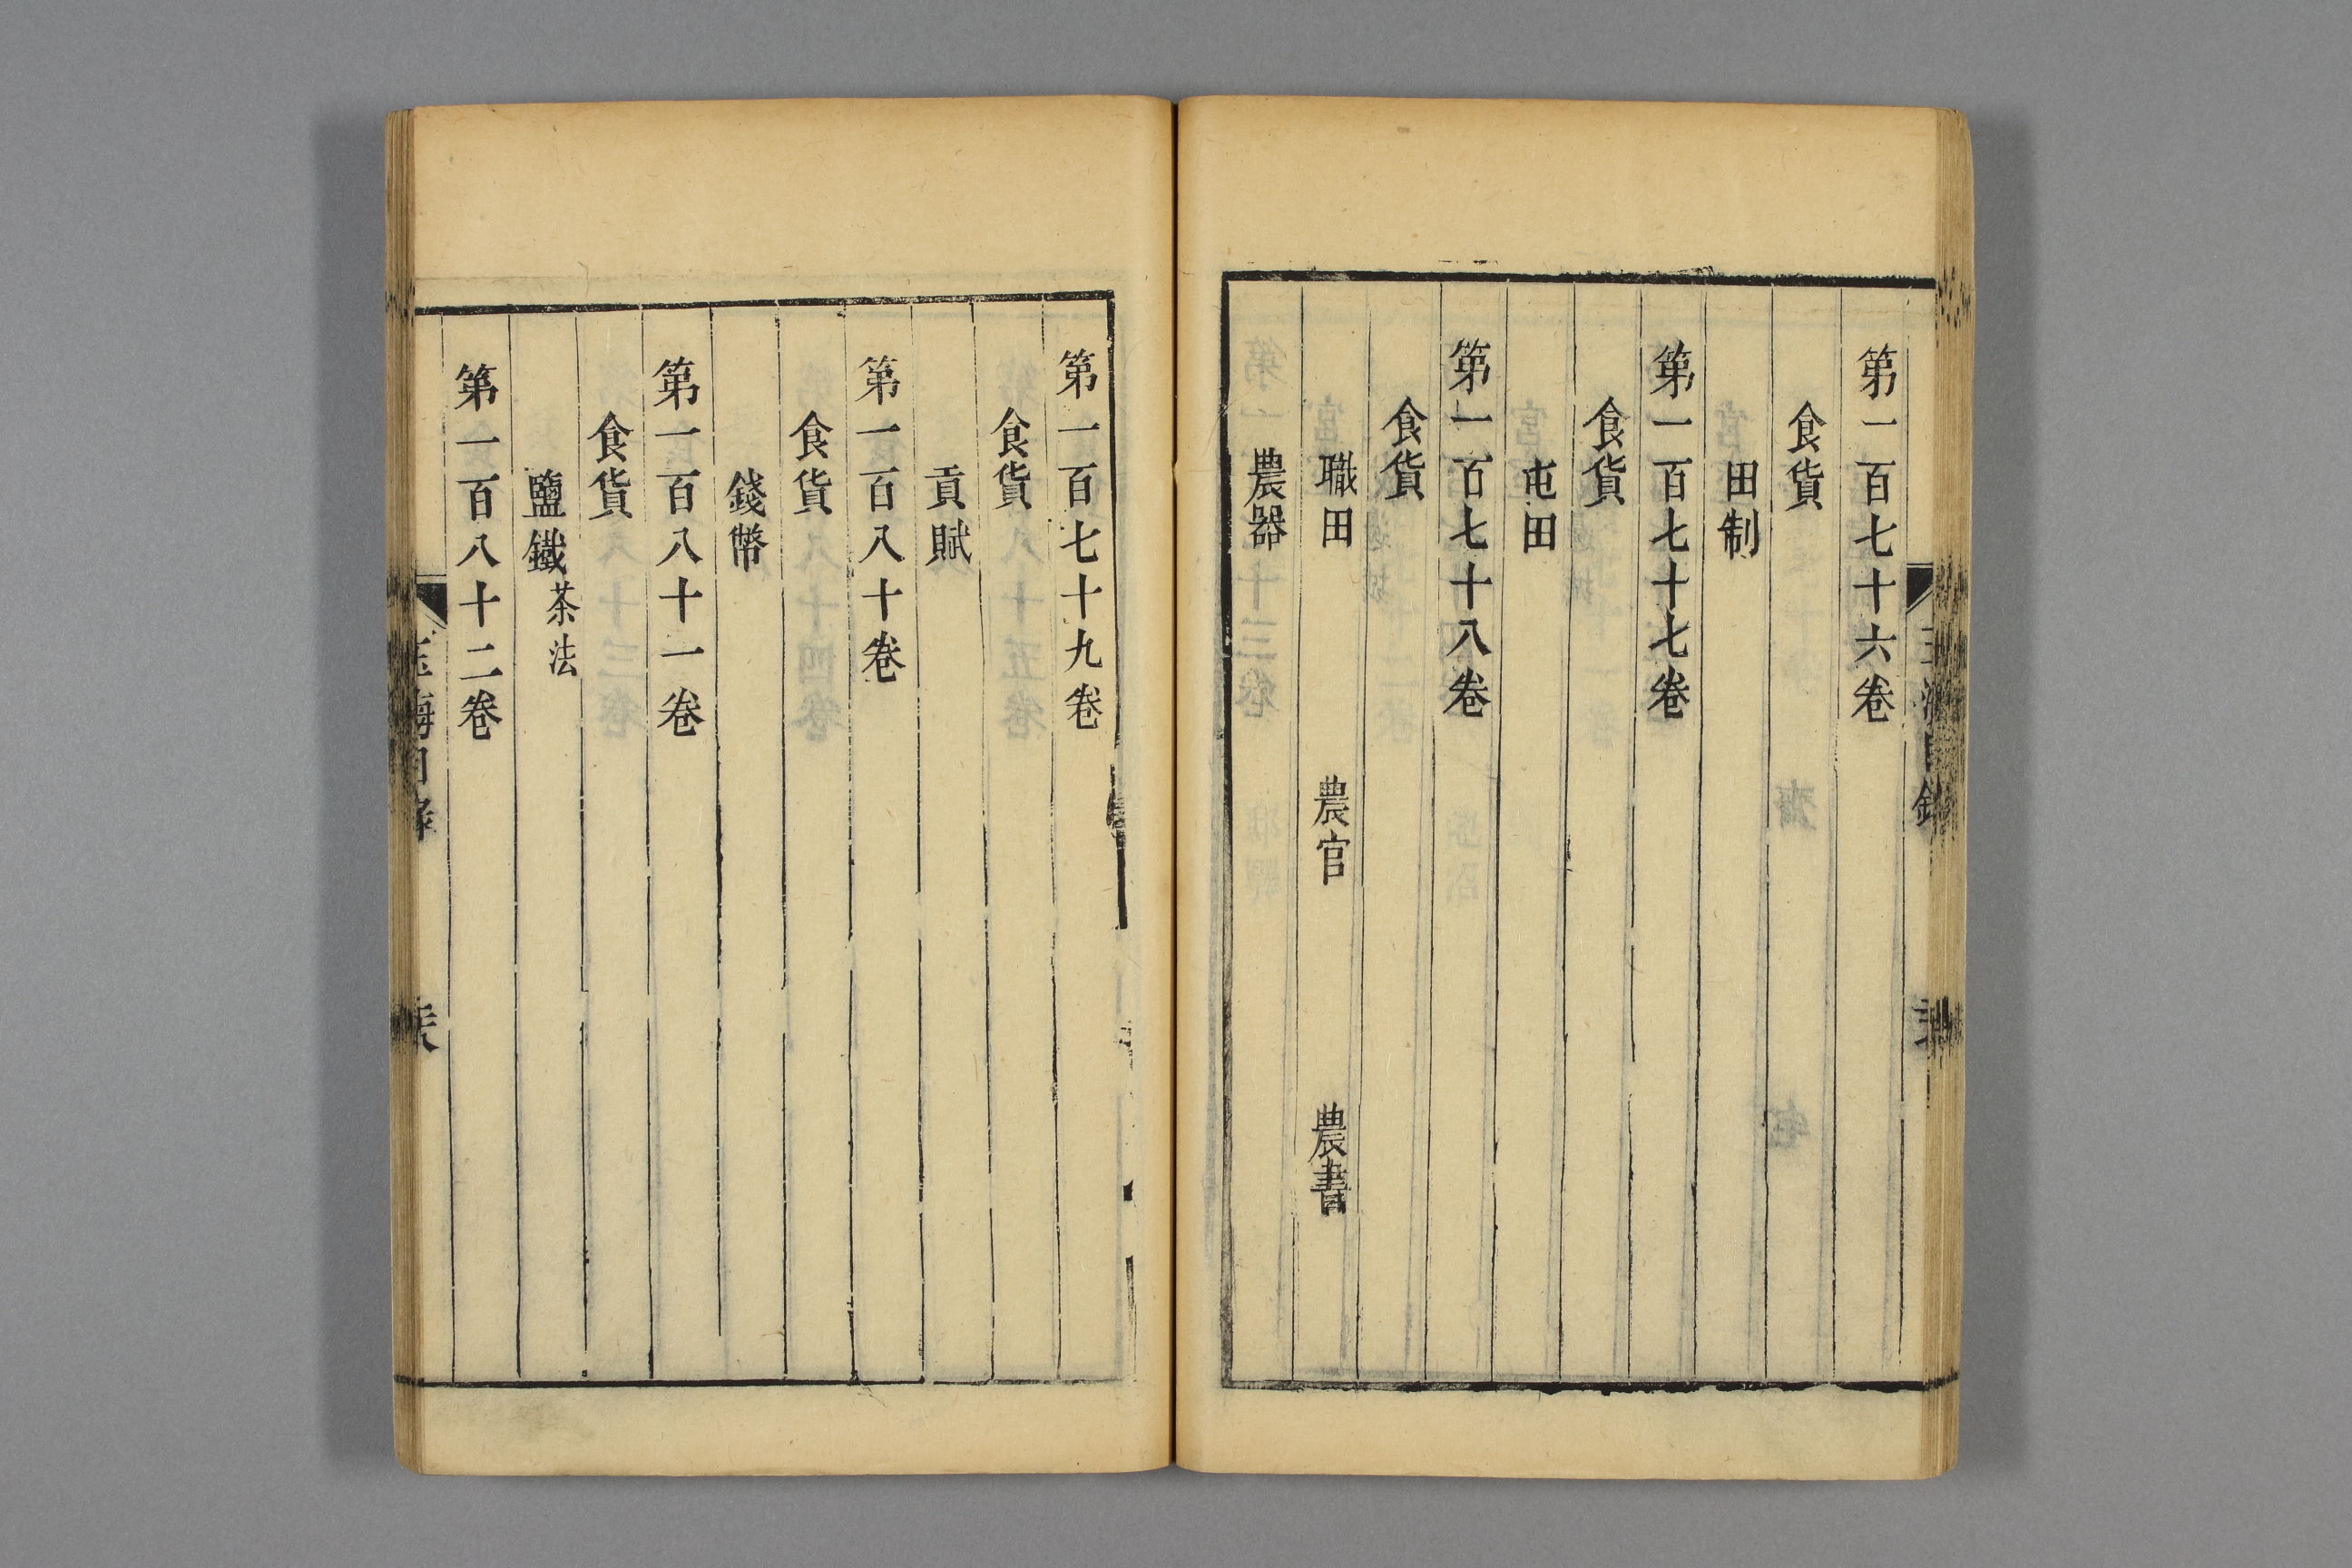 第一百七十六卷
食貨
田制
第一百七十七卷
食貨
屯田
第一百七十八卷
食貨
職田　農官　農書
農器
第一百七十九卷
食貨
貢賦
第一百八十卷
食貨
錢幣
第一百八十一卷
食貨
鹽鐵茶法
第一百八十二卷
玉海目錄